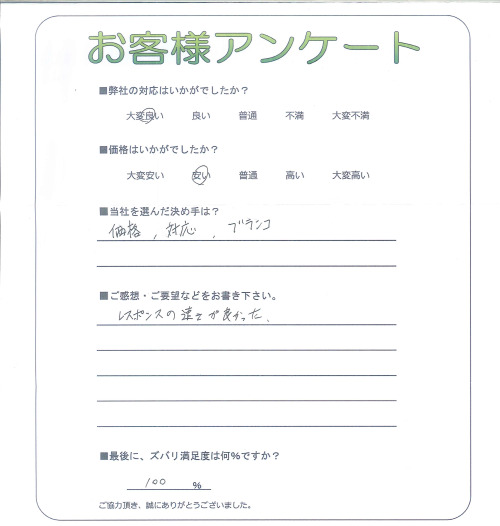 お客様アンケート
■弊社の対応はいかがでしたか？
大変良い 良い 普通 不満 大変不満
■価格はいかがでしたか？
大変安い 安い 普通 高い 大変高い
■当社を選んだ決め手は？
価格, 対応, ブランコ
■ご感想・ご要望などをお書き下さい。
レスポンスの速さが良かった.
■最後に、ズバリ満足度は何%ですか？
100 %
ご協力頂き、誠にありがとうございました。